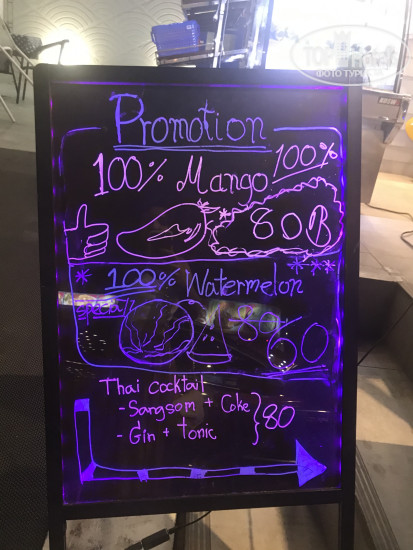 Promotion
100% Mango 100%
80B
100% Watermelon
special
80 60
Thai cocktail
- Sangsom + Coke
- Gin + tonic
80
ФОТО ТУРИ